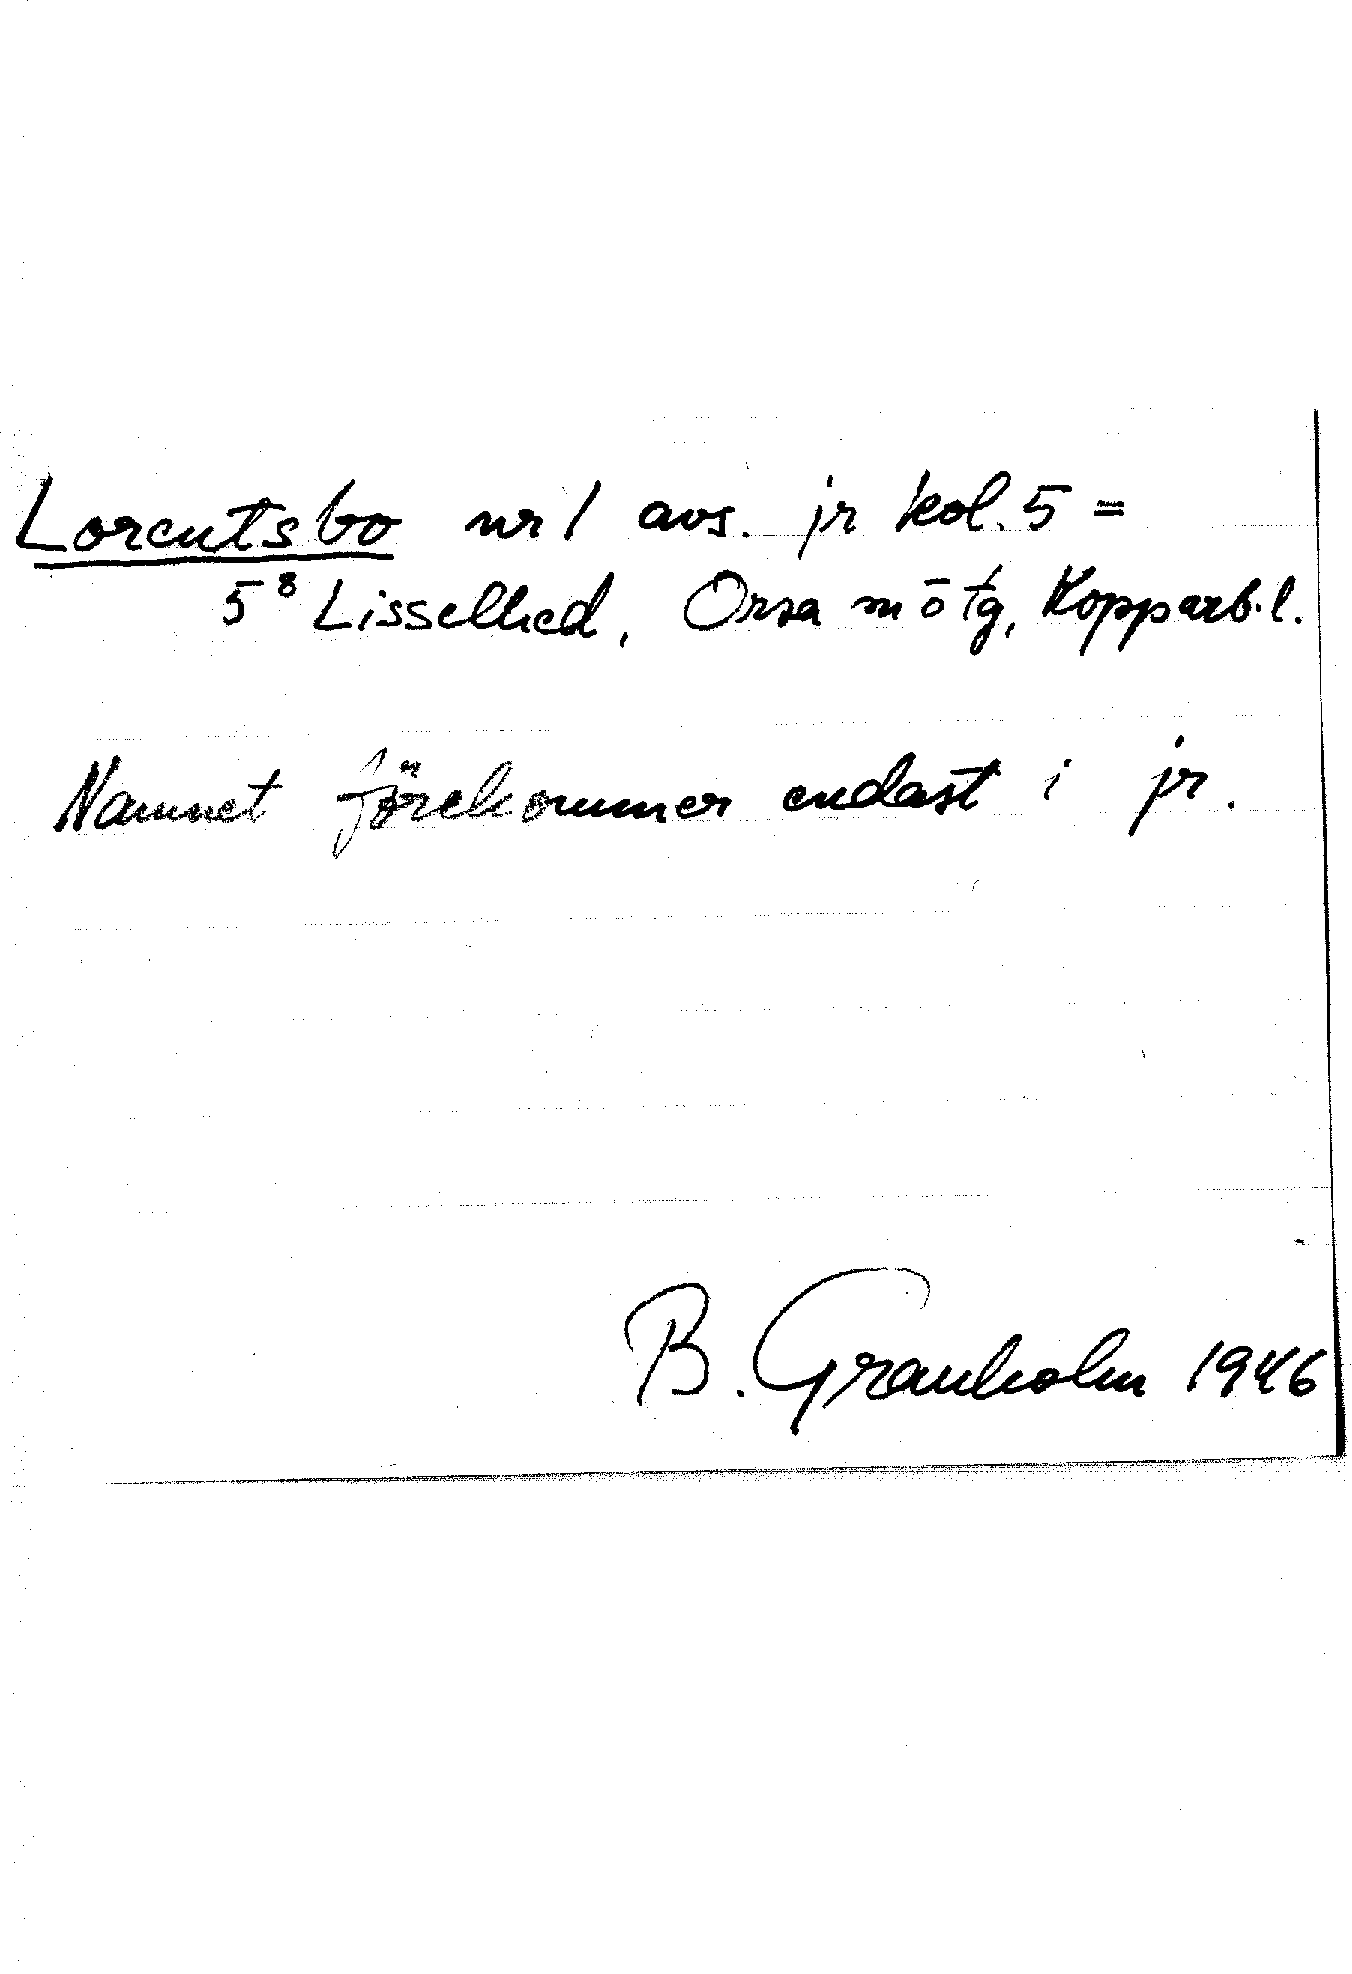 Lorentsbo nr 1 avs. jr kol. 5 =
5⁸ Lisselhed, Orsa m ō tg, Kopparb. l.
Namnet förekommer endast i jr.
B. Granholm 1946